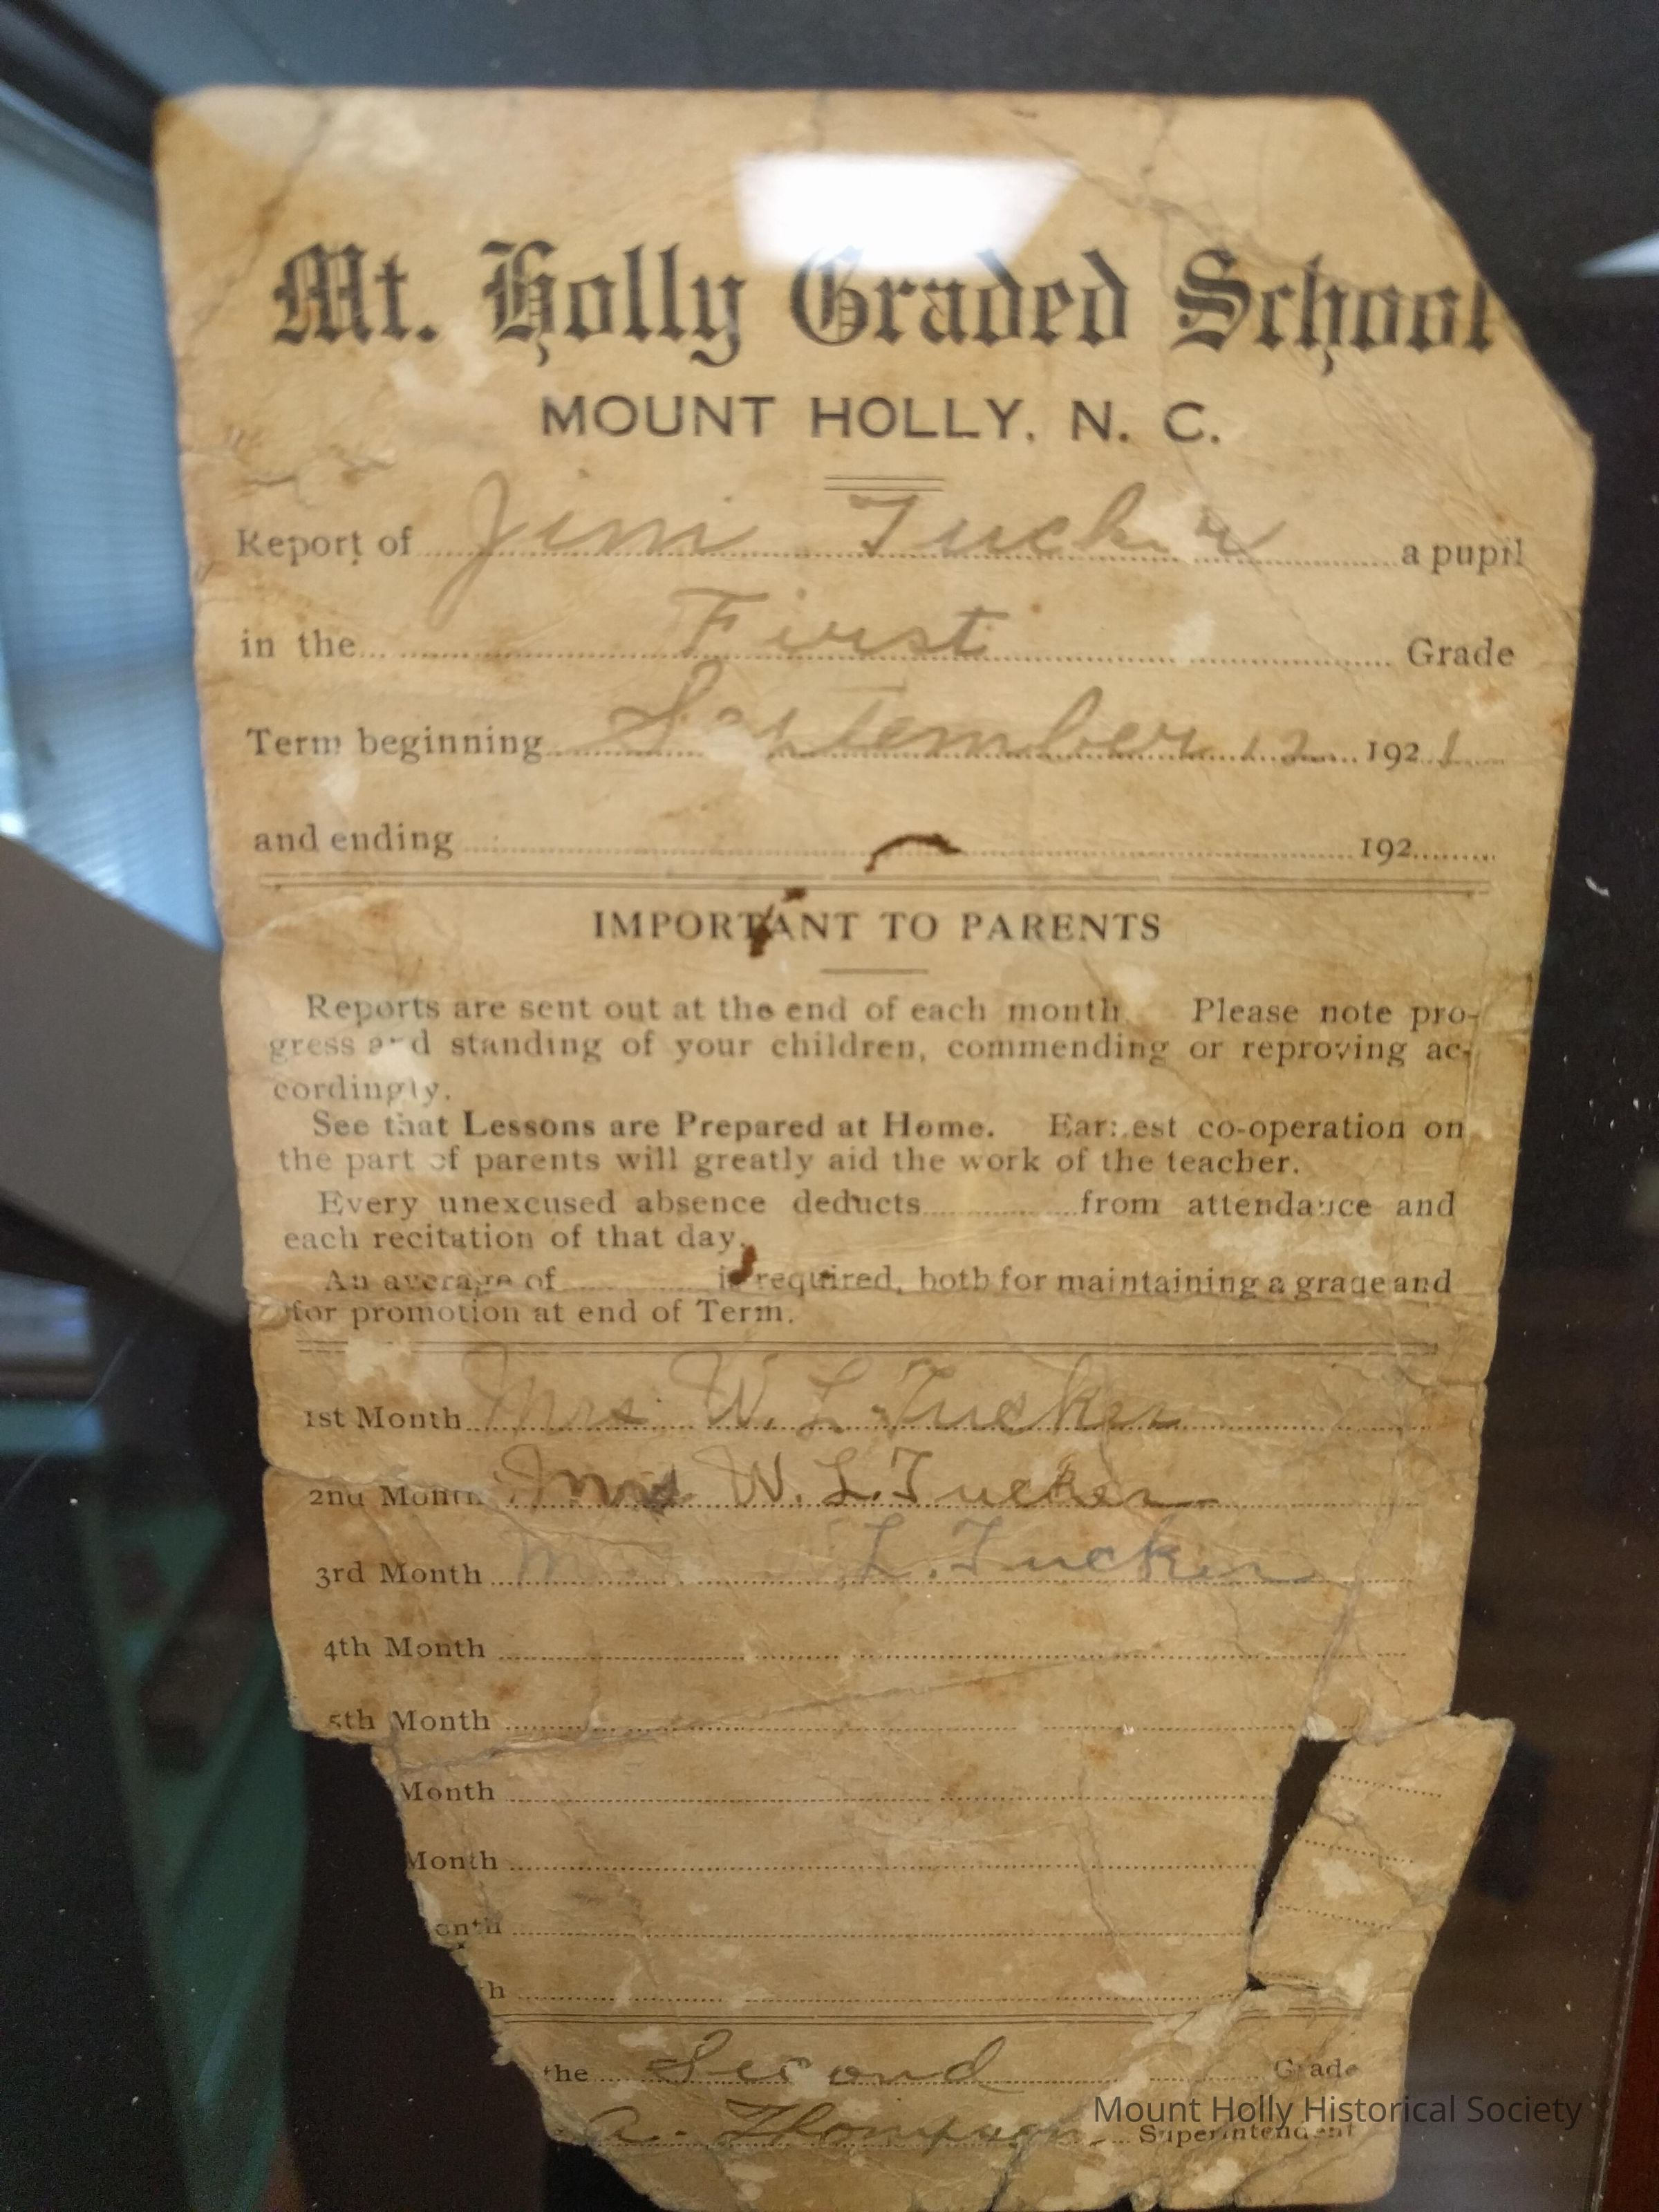 Mt. Holly Graded School
MOUNT HOLLY, N. C.
Report of Jim Tucker a pupil
in the First Grade
Term beginning September 12 1921
and ending 192
IMPORTANT TO PARENTS
Reports are sent out at the end of each month. Please note pro-
gress and standing of your children, commending or reproving ac-
cordingly.
See that Lessons are Prepared at Home. Earnest co-operation on
the part of parents will greatly aid the work of the teacher.
Every unexcused absence deducts from attendance and
each recitation of that day.
An average of is required, both for maintaining a grade and
for promotion at end of Term.
1st Month Mrs. W. L. Tucker
2nd Month Mrs W. L. Tucker
3rd Month L. Tucker
4th Month
5th Month
Month
Month
onth
h
the Second Grade
A. Thompson Superintendent
Mount Holly Historical Society